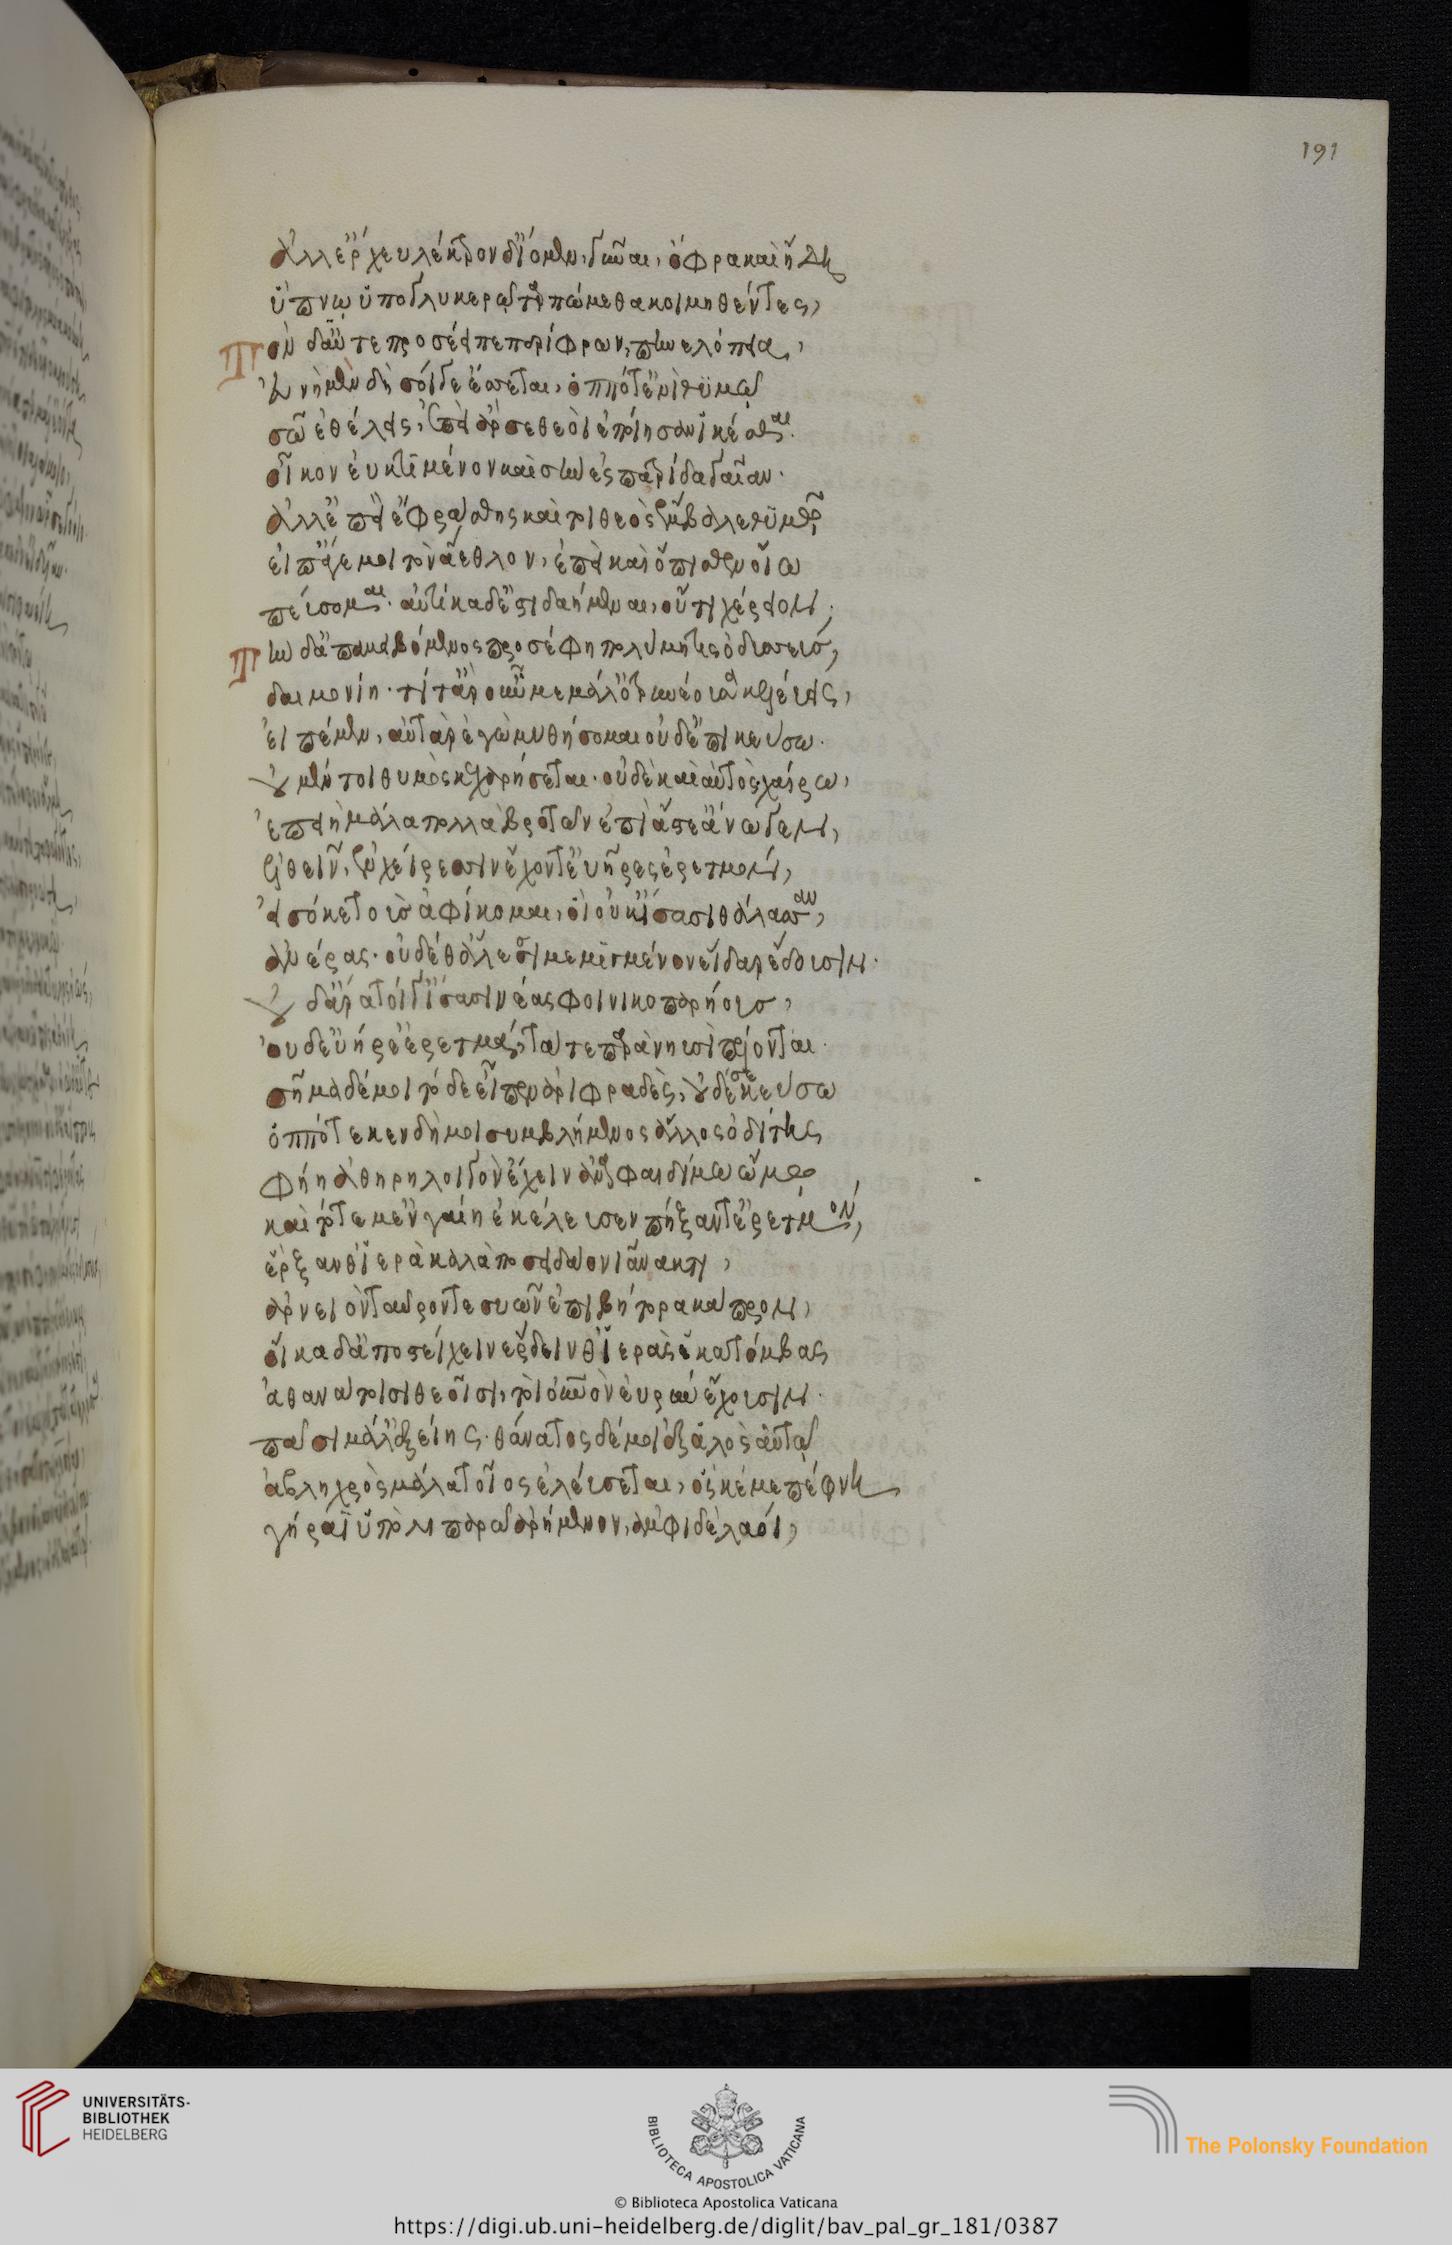 ἀλλ' ἔρχευ λέκτρονδ' ἴομεν, γύναι, ὄφρα καὶ ἤδη
ὕπνῳ ὕπο γλυκερῷ ταρπώμεθα κοιμηθέντες,
Τὸν δ' αὖτε προσέειπε περίφρων πηνελόπεια,
εὐνὴ μὲν δὴ σοί γε ἔσσεται, ὁππότε θυμῷ
σῷ ἐθέλεις, ἐπεὶ ἄρ σε θεοὶ ἐποίησαν ἱκέσθαι.
οἶκον ἐυκτίμενον καὶ σὴν ἐς πατρίδα γαῖαν.
ἀλλ' ἐπεὶ ἐφράσθης καί τοι θεὸς ἔμβαλε θυμῷ,
εἴπ' ἄγε μοι τὸν ἄεθλον, ἐπεὶ καὶ ὄπισθεν οἴω
πεύσομαι. αὐτίκα δ' ἐστὶ δαήμεναι, οὔτι χέρειον,
Τὴν δ' ἀπαμειβόμενος προσέφη πολύμητις ὀδυσσεύς,
δαιμονίη. τί τ' ἄρ οὖν με μάλ' ὀτρυνέουσα κελεύεις,
εἰπέμεν, αὐτὰρ ἐγὼ μυθήσομαι οὐδ' ἐπικεύσω.
οὐ μέν τοι θυμὸς κεχαρήσεται. οὐδὲ καὶ αὐτὸς χαίρω,
ἐπεὶ μάλα πολλὰ βροτῶν ἐπὶ ἄστε' ἄνωγεν,
ἐλθεῖν, ἐν χείρεσσιν ἔχοντ' εὐῆρες ἐρετμόν,
εἰσόκε τοὺς ἀφίκομαι, οἳ οὐκ ἴσασι θάλασσαν,
ἀνέρας. οὐδέ θ' ἅλεσσι μεμιγμένον εἶδαρ ἔδουσιν.
οὐδ' ἄρα τοί γ' ἴσασι νέας φοινικοπαρήους,
οὐδ' εὐήρε' ἐρετμά, τά τε πτερὰ νηυσὶ πέλονται.
σῆμα δέ μοι τόδε εἶπεν ἀριφραδὲς, οὐδέ σε κεύσω
ὁππότε κεν δή μοι συμβλήμενος ἄλλος ὁδίτης
φήῃ ἀθηρηλοιγὸν ἔχειν ἀνὰ φαιδίμω ὤμω
καὶ τότε μ' ἐν γαίη ἐκέλευσεν πήξαντ' ἐρετμόν,
ἔρξανθ' ἱερὰ καλὰ ποσειδάωνι ἄνακτι,
ἀρνειὸν ταῦρόν τε συῶν ἐπιβήτορα κάπρον,
οἴκαδ' ἀποστείχειν ἔρδειν θ' ἱερὰς ἑκατόμβας
ἀθανάτοισι θεοῖσι, τοὶ οὐρανὸν εὐρὺν ἔχουσιν.
πᾶσι μάλ' ἑξείης. θάνατος δέ μοι ἐξ ἁλὸς αὐτῷ
ἀβληχρὸς μάλα τοῖος ἐλεύσεται, ὅς κέ με πέφνη
γήραϊ ὕπο λιπαρῷ ἀρήμενον, ἀμφὶ δὲ λαοί,
191
UNIVERSITÄTS-
BIBLIOTHEK
HEIDELBERG
BIBLIOTECA APOSTOLICA VATICANA
The Polonsky Foundation
© Biblioteca Apostolica Vaticana
https://digi.ub.uni-heidelberg.de/diglit/bav_pal_gr_181/0387